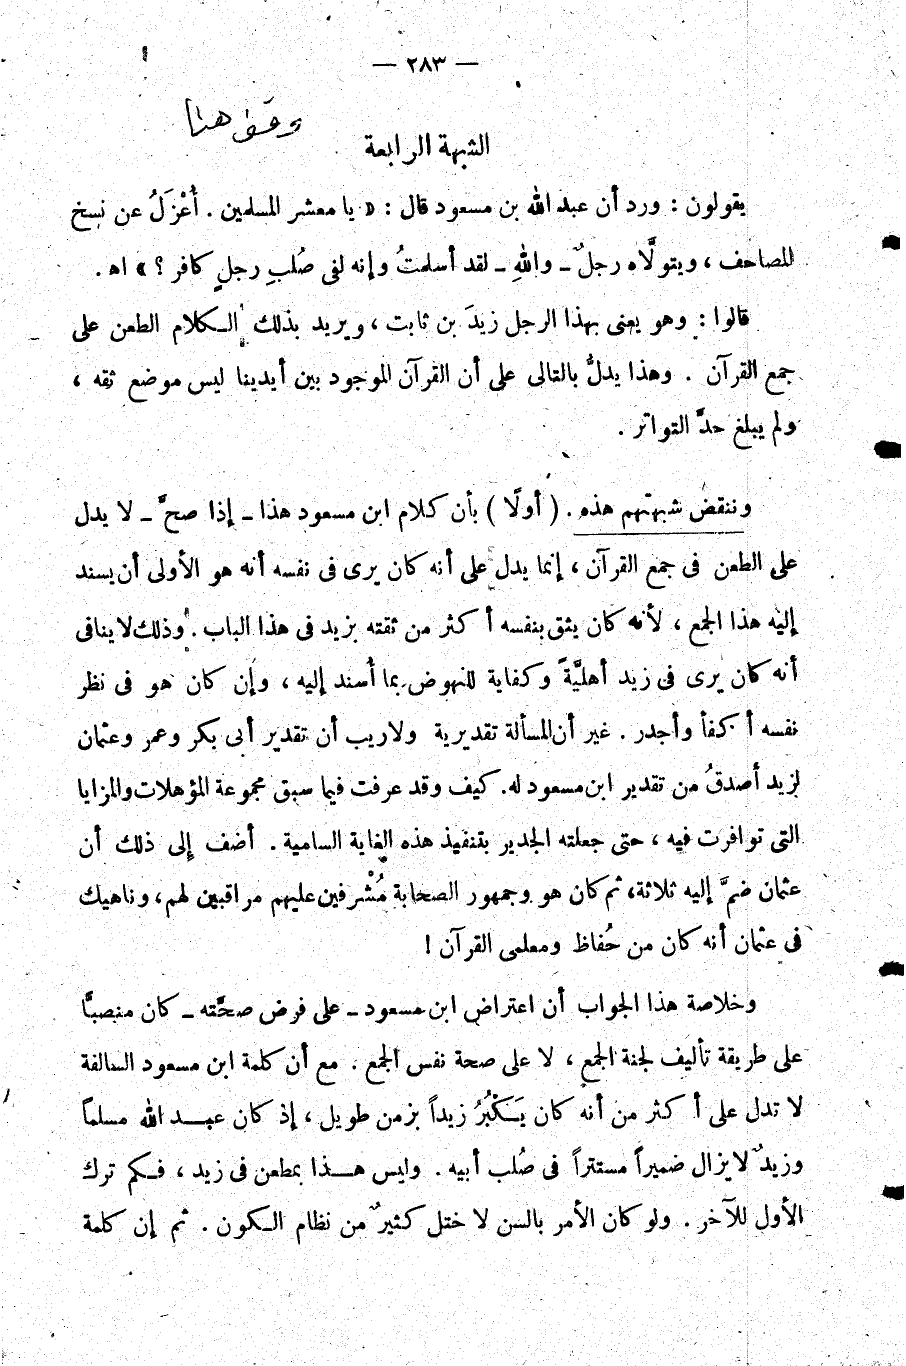 — ٢٨٣ —
وقف هنا
الشبهة الرابعة
يقولون : ورد أن عبد الله بن مسعود قال : « يا معشر المسلمين . أُعْزَلُ عن نسخ
المصاحف ، ويتولَّاه رجلٌ ـ واللهِ ـ لقد أسلمتُ وإنه لفى صُلبِ رجلٍ كافر ؟ » اه .
قالوا : وهو يعنى بهذا الرجل زيدَ بن ثابت ، ويريد بذلك الكلام الطعن على
جمع القرآن . وهذا يدلُّ بالتالى على أن القرآن الموجود بين أيدينا ليس موضع ثقه ،
ولم يبلغ حدَّ التواتر .
وننقض شبهتهم هذه . ( أولًا ) بأن كلام ابن مسعود هذا ـ إذا صحَّ ـ لا يدل
على الطعن فى جمع القرآن ، إنما يدل على أنه كان يرى فى نفسه أنه هو الأولى أن يسند
إليه هذا الجمع ، لأنه كان يثق بنفسه أكثر من ثقته بزيد فى هذا الباب . وذلك لا ينافى
أنه كان يرى فى زيد أهليَّةً وكفاية للنهوض بما أُسند إليه ، وإن كان هو فى نظر
نفسه أكفأ وأجدر . غير أن المسألة تقديرية ولا ريب أن تقدير أبى بكر وعمر وعثمان
لزيد أصدقُ من تقدير ابن مسعود له. كيف وقد عرفت فيما سبق مجموعة المؤهلات والمزايا
التى توافرت فيه ، حتى جعلته الجدير بتنفيذ هذه الغاية السامية . أضف إلى ذلك أن
عثمان ضمَّ إليه ثلاثة، ثم كان هو وجمهور الصحابة مُشْرفين عليهم مراقبين لهم، وناهيك
فى عثمان أنه كان من حُفاظ ومعلمى القرآن !
وخلاصة هذا الجواب أن اعتراض ابن مسعود ـ على فرض صحَّته ـ كان منصبًّا
على طريقة تأليف لجنة الجمع ، لا على صحة نفس الجمع . مع أن كلمة ابن مسعود السالفة
لا تدل على أكثر من أنه كان يَكْبُرُ زيداً بزمن طويل ، إذ كان عبد الله مسلماً
وزيدٌ لا يزال ضميراً مستتراً فى صُلب أبيه . وليس هذا بمطعن فى زيد ، فكم ترك
الأول للآخر . ولو كان الأمر بالسن لاختل كثيرٌ من نظام الكون . ثم إن كلمة